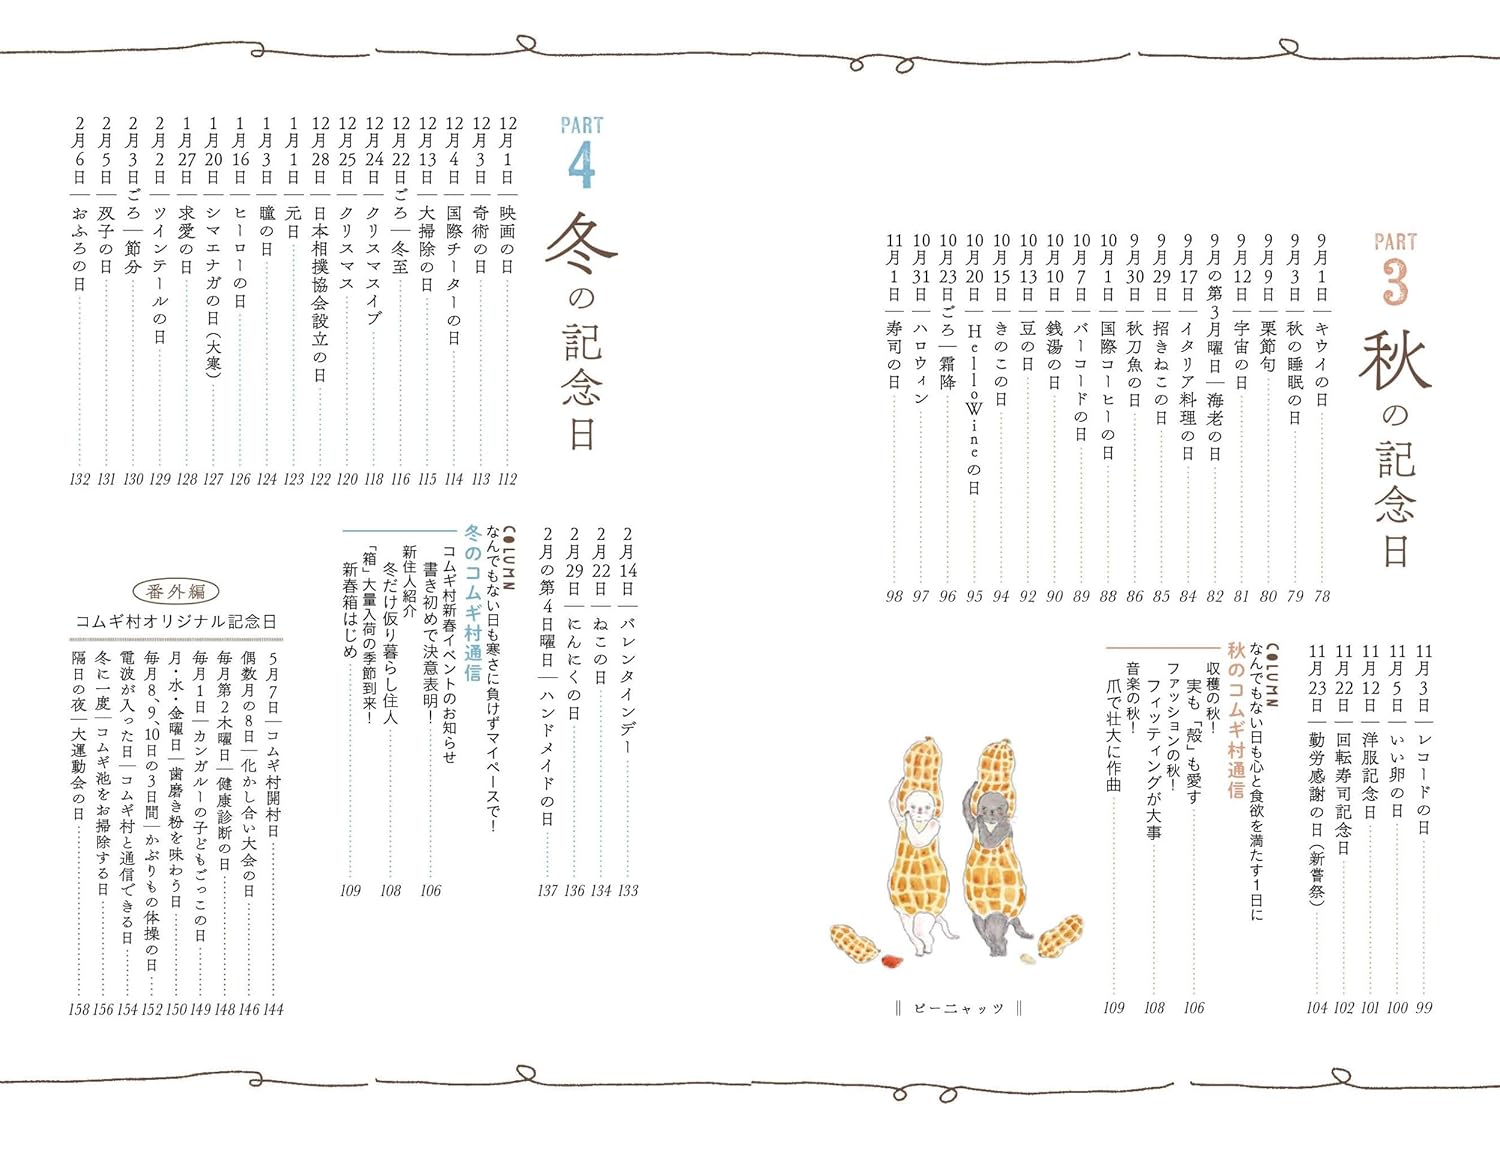 PART
3
秋の記念日
9月1日｜キウイの日 78
9月3日｜秋の睡眠の日 79
9月9日｜栗節句 80
9月12日｜宇宙の日 81
9月の第3月曜日｜海老の日 82
9月17日｜イタリア料理の日 84
9月29日｜招きねこの日 85
9月30日｜秋刀魚の日 86
10月1日｜国際コーヒーの日 88
10月7日｜バーコードの日 89
10月10日｜銭湯の日 90
10月13日｜豆の日 92
10月15日｜きのこの日 94
10月20日｜Hello Wineの日 95
10月23日ごろ｜霜降 96
10月31日｜ハロウィン 97
11月1日｜寿司の日 98
11月3日｜レコードの日 99
11月5日｜いい卵の日 100
11月12日｜洋服記念日 101
11月22日｜回転寿司記念日 102
11月23日｜勤労感謝の日（新嘗祭） 104
COLUMN
なんでもない日も心と食欲を満たす1日に
秋のコムギ村通信
収穫の秋！
実も「殻」も愛す 106
ファッションの秋！
フィッティングが大事 108
音楽の秋！
爪で壮大に作曲 109
ピーニャッツ
PART
4
冬の記念日
12月1日｜映画の日 112
12月3日｜奇術の日 113
12月4日｜国際チーターの日 114
12月13日｜大掃除の日 115
12月22日ごろ｜冬至 116
12月24日｜クリスマスイブ 118
12月25日｜クリスマス 120
12月28日｜日本相撲協会設立の日 122
1月1日｜元日 123
1月3日｜瞳の日 124
1月16日｜ヒーローの日 126
1月20日｜シマエナガの日（大寒） 127
1月27日｜求愛の日 128
2月2日｜ツインテールの日 129
2月3日ごろ｜節分 130
2月5日｜双子の日 131
2月6日｜おふろの日 132
2月14日｜バレンタインデー 133
2月22日｜ねこの日 134
2月29日｜にんにくの日 136
2月の第4日曜日｜ハンドメイドの日 137
COLUMN
なんでもない日も寒さに負けずマイペースで！
冬のコムギ村通信
コムギ村新春イベントのお知らせ
書き初めで決意表明！ 106
新住人紹介
冬だけ仮り暮らし住人 108
「箱」大量入荷の季節到来！
新春箱はじめ 109
番外編
コムギ村オリジナル記念日
5月7日｜コムギ村開村日 144
偶数月の8日｜化かし合い大会の日 146
毎月第2木曜日｜健康診断の日 148
毎月1日｜カンガルーの子どもごっこの日 149
月・水・金曜日｜歯磨き粉を味わう日 150
毎月8、9、10日の3日間｜かぶりもの体操の日 152
電波が入った日｜コムギ村と通信できる日 154
冬に一度｜コムギ池をお掃除する日 156
隔日の夜｜大運動会の日 158